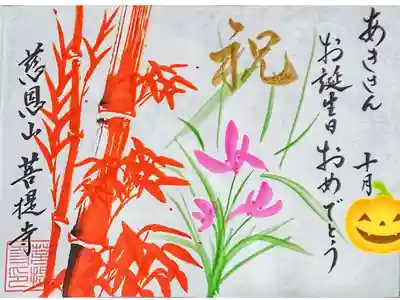 あきさん
お誕生日おめでとう
十月
祝
慈恩山 菩提寺